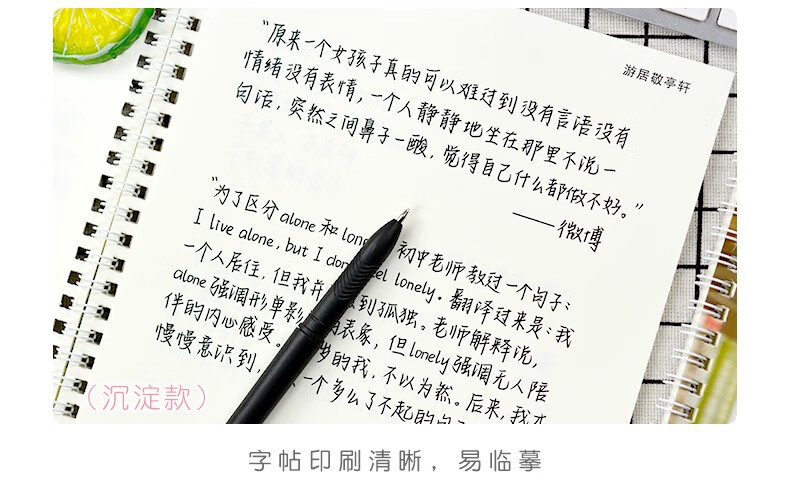 游居敬亭轩
“原来一个女孩子真的可以难过到没有言语没有
情绪没有表情，一个人静静地坐在那里不说一
句话，突然之间鼻子一酸，觉得自己什么都做不好。”
——微博
“为了区分alone和lone 初中老师教过一个句子：
I live alone, but I don el lonely. 翻译过来是：我
一个人居住，但我并 到孤独。老师解释说，
alone强调形单影 表象，但lonely强调无人陪
伴的内心感受。 岁的我，不以为然。后来，我才
慢慢意识到， 一个多么了不起的句
（沉淀款）
字帖印刷清晰，易临摹